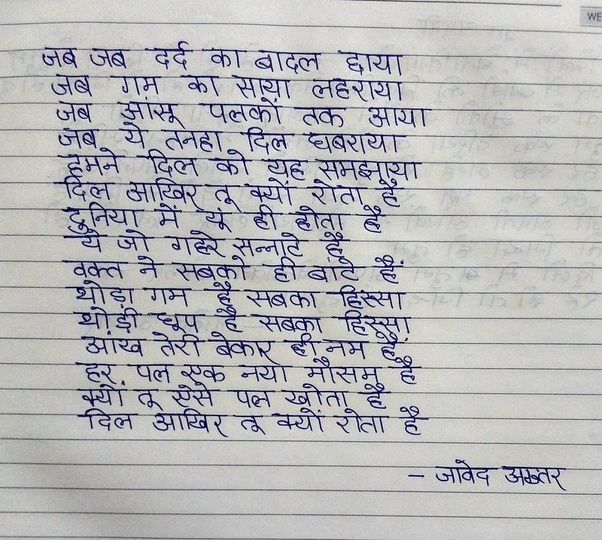 WE
जब जब दर्द का बादल छाया
जब गम का साया लहराया
जब आंसू पलकों तक आया
जब ये तनहा दिल घबराया
हमने दिल को यह समझाया
दिल आखिर तू क्यों रोता है
दुनिया में यूं ही होता है
ये जो गहरे सन्नाटे है
वक्त ने सबको ही बांटे हैं
थोड़ा गम है सबका हिस्सा
थोड़ी धूप है सबका हिस्सा
आंख तेरी बेकार ही नम है
हर पल एक नया मौसम है
क्यों तू ऐसे पल खोता है
दिल आखिर तू क्यों रोता है
– जावेद अख्तर